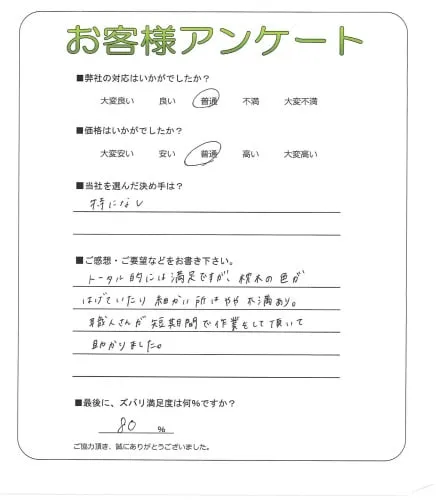 お客様アンケート
■弊社の対応はいかがでしたか？
大変良い 良い 普通 不満 大変不満
■価格はいかがでしたか？
大変安い 安い 普通 高い 大変高い
■当社を選んだ決め手は？
特になし
■ご感想・ご要望などをお書き下さい。
トータル的には満足ですが、枕木の色が
はげていたり細かい所はやや不満あり。
職人さんが短期間で作業をして頂いて
助かりました。
■最後に、ズバリ満足度は何％ですか？
80 ％
ご協力頂き、誠にありがとうございました。